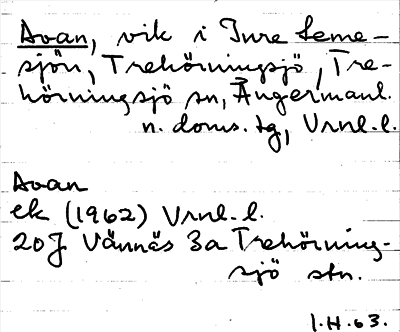 Avan, vik i Inre Leme-
sjön, Trehörningsjö, Tre-
hörningsjö sn, Ångermanl.
n. doms. tg, Vrnl. l.
Avan
ek (1962) Vrnl. l.
20J Vännäs 3a Trehörning-
sjö stn.
I.H. 63.